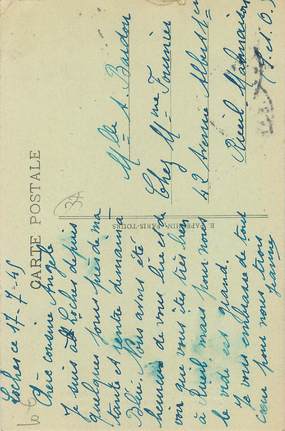 CARTE POSTALE
Loches ce 17-7-45
Chère cousine Angèle
Je suis à Loches depuis
quelques jours près de ma
tante et rentre demain à
Nous avons été
heureux de vous lire et de
voir que vous êtes très bien
à Rueil mais pour nous
le vide est grand.
Je vous embrasse de tout
cœur pour nous trois
Mlle A. Bardou
Chez Mme Fournier
42 Avenue Albert 1er
Rueil Malmaison
(S. et O.)
PARIS-TOURS